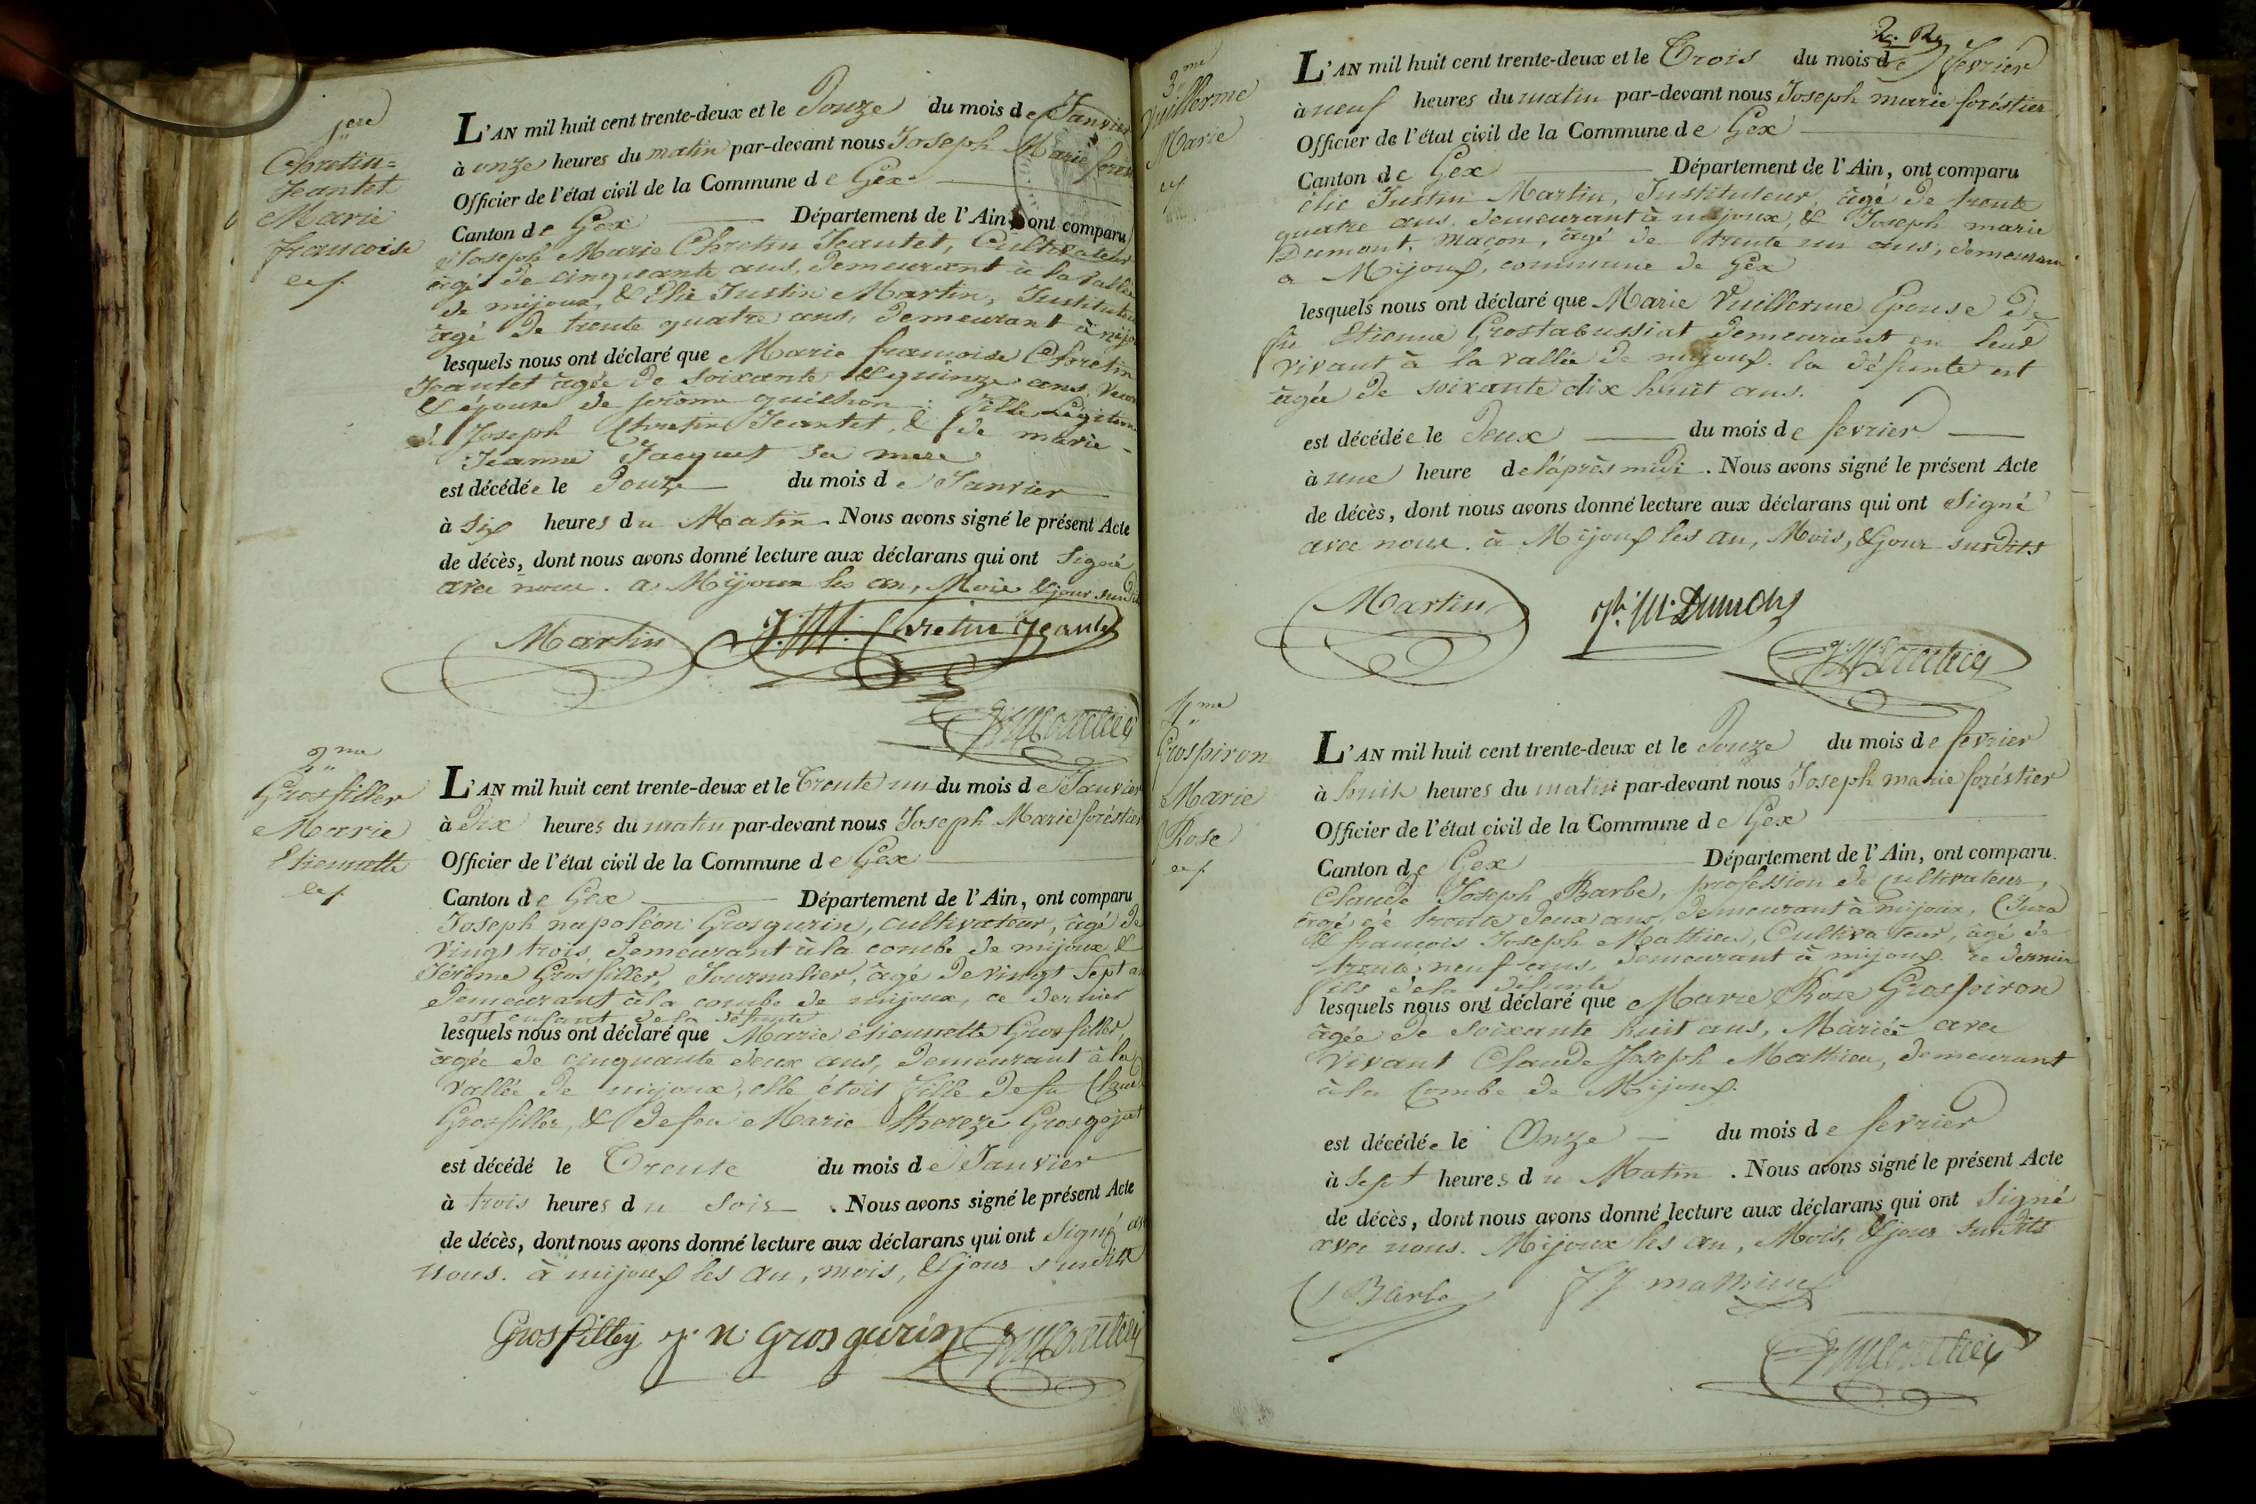 1ere
Chretin=
Jeantet
Marie
francoise
L'AN mil huit cent trente-deux et le Douze du mois de Janvier
à onze heures du matin par-devant nous Joseph Marie forés
Officier de l'état civil de la Commune de Gex
Canton de Gex Département de l'Ain, ont comparu
Joseph Marie Chretin Jeantet, Cultivateur
âgé de cinquante ans, demeurant à la vallée
de mijoux, & Elie Justin Martin, Instituteur
âgé de trente quatre ans, demeurant à mijo
lesquels nous ont déclaré que Marie francoise Chretin
Jeantet âgée de soixante & quinze ans,
& épouse de jerome : fille Légitime
de Joseph Chretin Jeantet, & de marie
Jeanne Jacquet sa mere
est décédée le Douze du mois de Janvier
à Six heures du Matin. Nous avons signé le présent Acte
de décès, dont nous avons donné lecture aux déclarans qui ont Signé
avec nous. a Mijoux les an, Mois & jour susdits
Martin J. M. Chretin Jeantet
2me
Grosfiller
Marie
Etiennette
L'AN mil huit cent trente-deux et le Trente un du mois de Janvier
à Dix heures du matin par-devant nous Joseph Marie foréstier
Officier de l'état civil de la Commune de Gex
Canton de Gex Département de l'Ain, ont comparu
Joseph napoléon Grosgurin, cultivateur, âgé de
vingt trois, demeurant à la combe de mijoux &
Jérôme Grosfiller, Journalier, âgé de vingt Sept an
demeurant à la combe de mijoux, ce dernier
est enfant de la défunte
lesquels nous ont déclaré que Marie étiennette Grosfiller,
âgée de cinquante deux ans, demeurant à la
vallée de mijoux, elle étoit fille de fu Claude
Grosfiller, & de feu Marie thereze Grosgojat
est décédé le Trente du mois de Janvier
à trois heures du soir. Nous avons signé le présent Acte
de décès, dont nous avons donné lecture aux déclarans qui ont Signé av
nous. à mijoux les an, mois, & jour susdits
Grosfilley j. n. grosgurin
3.me
Vuillerme
Marie
2. R
L'AN mil huit cent trente-deux et le Trois du mois de fevrier
à neuf heures du matin par-devant nous Joseph marie foréstier
Officier de l'état civil de la Commune de Gex
Canton de Gex Département de l'Ain, ont comparu
élie Justin Martin, Instituteur, âgé de trente
quatre ans, demeurant à mijoux, & Joseph marie
Dumont, maçon, âgé de trente un ans, demeurant
a Mijoux, commune de Gex
lesquels nous ont déclaré que Marie Vuillerme Epouse de
fu Etienne Grostabussiat demeurant en leur
vivant à la vallée de mijoux. la défunte est
âgée de soixante dix huit ans.
est décédée le Deux du mois de fevrier
à une heure de l'après midi. Nous avons signé le présent Acte
de décès, dont nous avons donné lecture aux déclarans qui ont Signé
avec nous. à Mijoux les an, Mois, & jour susdits
Martin Jh. M. Dumont
4me
Grospiron
Marie
Rose
L'AN mil huit cent trente-deux et le Douze du mois de fevrier
à huit heures du matin par-devant nous Joseph marie foréstier
Officier de l'état civil de la Commune de Gex
Canton de Gex Département de l'Ain, ont comparu
Claude Joseph Barbe, profession de cultivateur,
âgé de trente deux ans, demeurant à mijoux, (Jura
& francois Joseph Mathieu, Cultivateur, âgé de
trente neuf ans, demeurant à mijoux. ce dernier
fils de la défunte
lesquels nous ont déclaré que Marie Rose Grospiron
âgée de soixante huit ans, Mariée avec
vivant Claude Joseph Mathieu, demeurant
à la Combe de Mijoux.
est décédée le Onze du mois de fevrier
à Sept heures du Matin. Nous avons signé le présent Acte
de décès, dont nous avons donné lecture aux déclarans qui ont Signé
avec nous. Mijoux les an, Mois, & jour susdits
Barbe f J mathieu